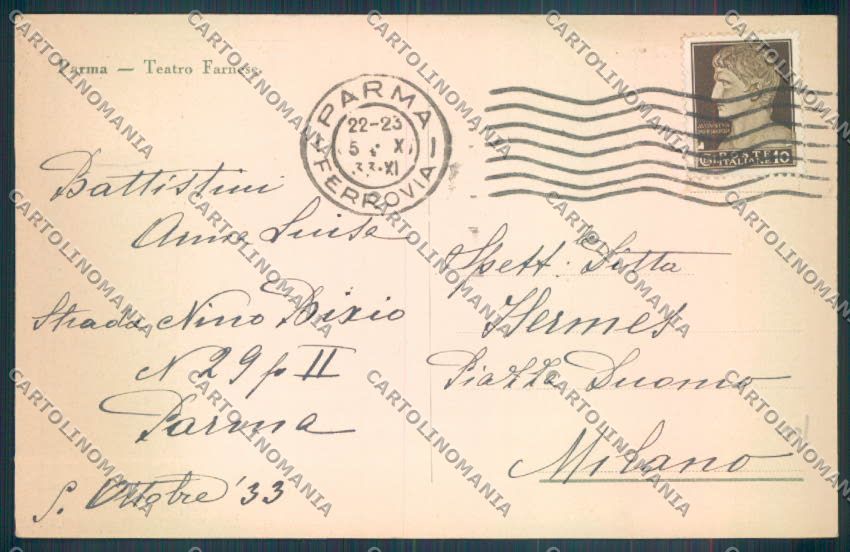 Parma — Teatro Farnese
PARMA
22-23
5 X
33-XI
FERROVIA
POSTE
ITALIANE 10
Battistini
Anna Luisa
Strada Nino Bixio
N 29 p II
Parma
5. Ottobre '33
Spett. Ditta
Hermes
Piazza Duomo
Milano
CARTOLINOMANIA